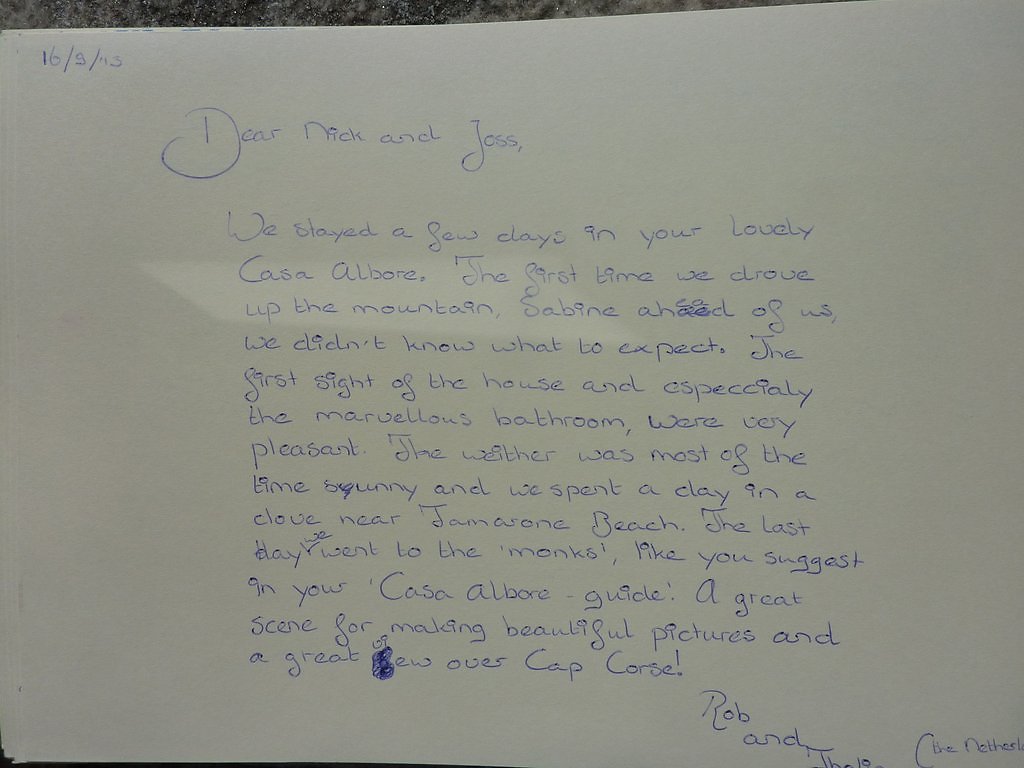 16/9/'13
Dear Nick and Joss,
We stayed a few days in your lovely
Casa Albore. The first time we drove
up the mountain, Sabine ahead of us,
we didn't know what to expect. The
first sight of the house and especcialy
the marvellous bathroom, were very
pleasant. The weither was most of the
time sunny and we spent a day in a
clove near Tamarone Beach. The last
day we went to the 'monks', like you suggest
in your 'Casa Albore - guide'. A great
scene for making beautiful pictures and
a great view over Cap Corse!
Rob
and
(the Netherla